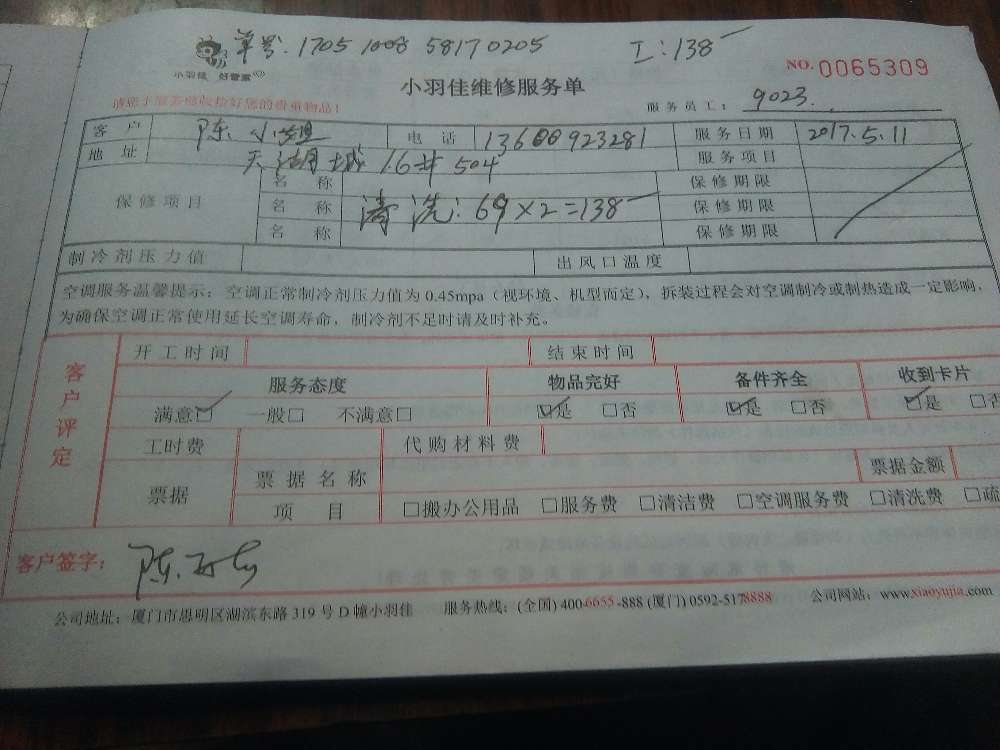 单号. 1705 1008 58170205 工:138
小羽佳 好管家
NO. 0065309
小羽佳维修服务单
请您小服务收拾好您的贵重物品!
服务员工: 9023
客户 陈小姐 电话 13600923281 服务日期 2017.5.11
地址 天湖城16# 504 服务项目
保修项目 名称 保修期限
名称 清洗: 69×2=138 保修期限
名称 保修期限
制冷剂压力值 出风口温度
空调服务温馨提示: 空调正常制冷剂压力值为 0.45mpa (视环境、机型而定), 拆装过程会对空调制冷或制热造成一定影响,
为确保空调正常使用延长空调寿命, 制冷剂不足时请及时补充。
客户评定
开工时间 结束时间
服务态度 物品完好 备件齐全 收到卡片
满意☑ 一般□ 不满意□ ☑是 □否 ☑是 □否 ☑是 □否
工时费 代购材料费
票据 票据名称 票据金额
项目 □搬办公用品 □服务费 □清洁费 □空调服务费 □清洗费 □疏
客户签字: 陈
公司地址: 厦门市思明区湖滨东路 319 号 D 幢小羽佳 服务热线: (全国) 400-6655-888 (厦门) 0592-5178888 公司网站: www.xiaoyujia.com